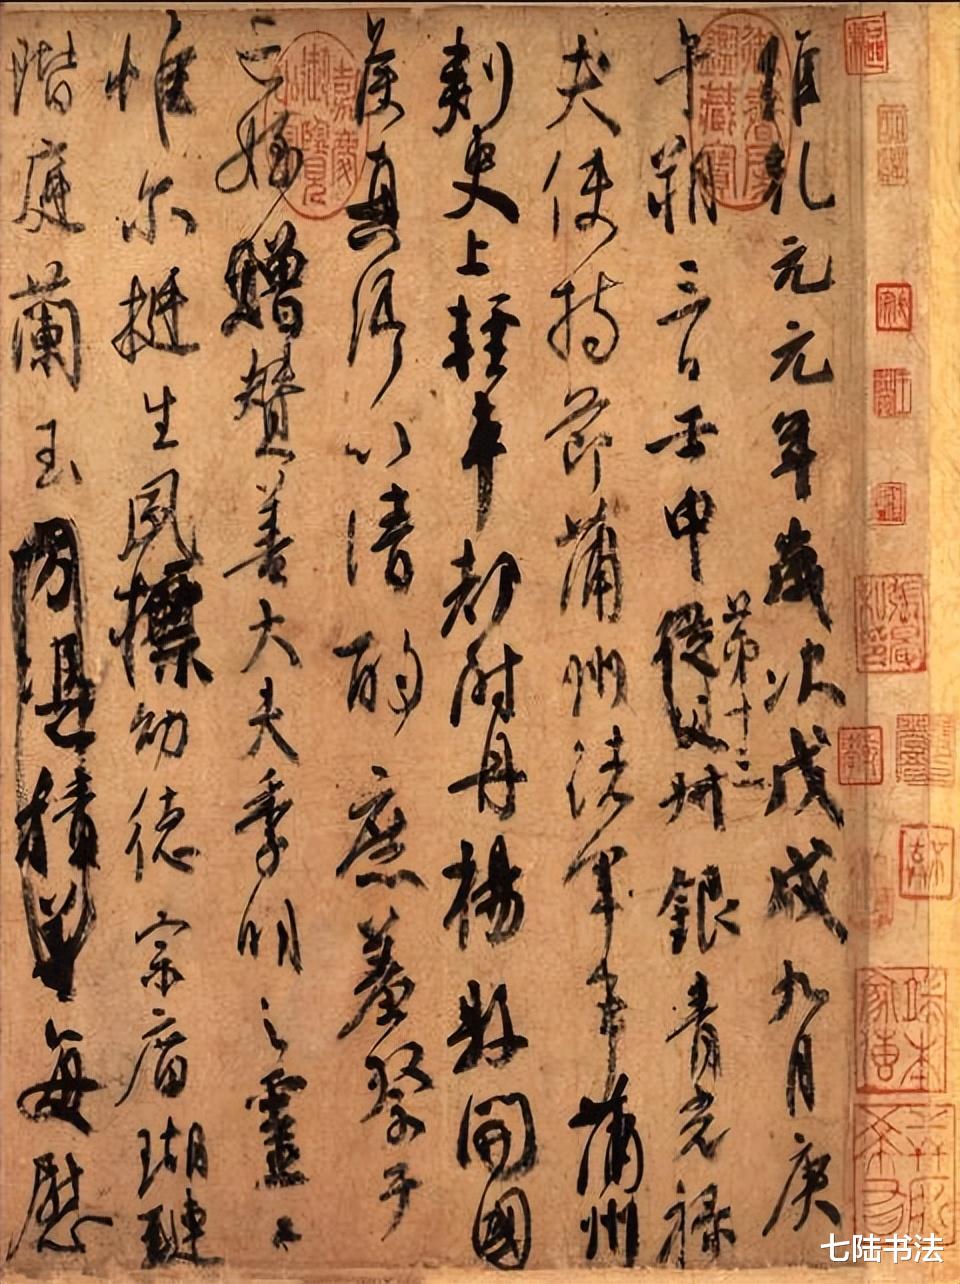 維乾元元年歲次戊戌九月庚
午朔三日壬申從父叔銀青光祿
第十三
夫使持節蒲州諸軍事蒲州
刺史上輕車都尉丹楊縣開國
侯真卿以清酌庶羞祭于
亡姪贈贊善大夫季明之靈曰
惟尔挺生夙標幼德宗廟瑚璉
階庭蘭玉方憑積善每慰
御書房鑑藏寶
嘉慶御覽之寶
七陆书法